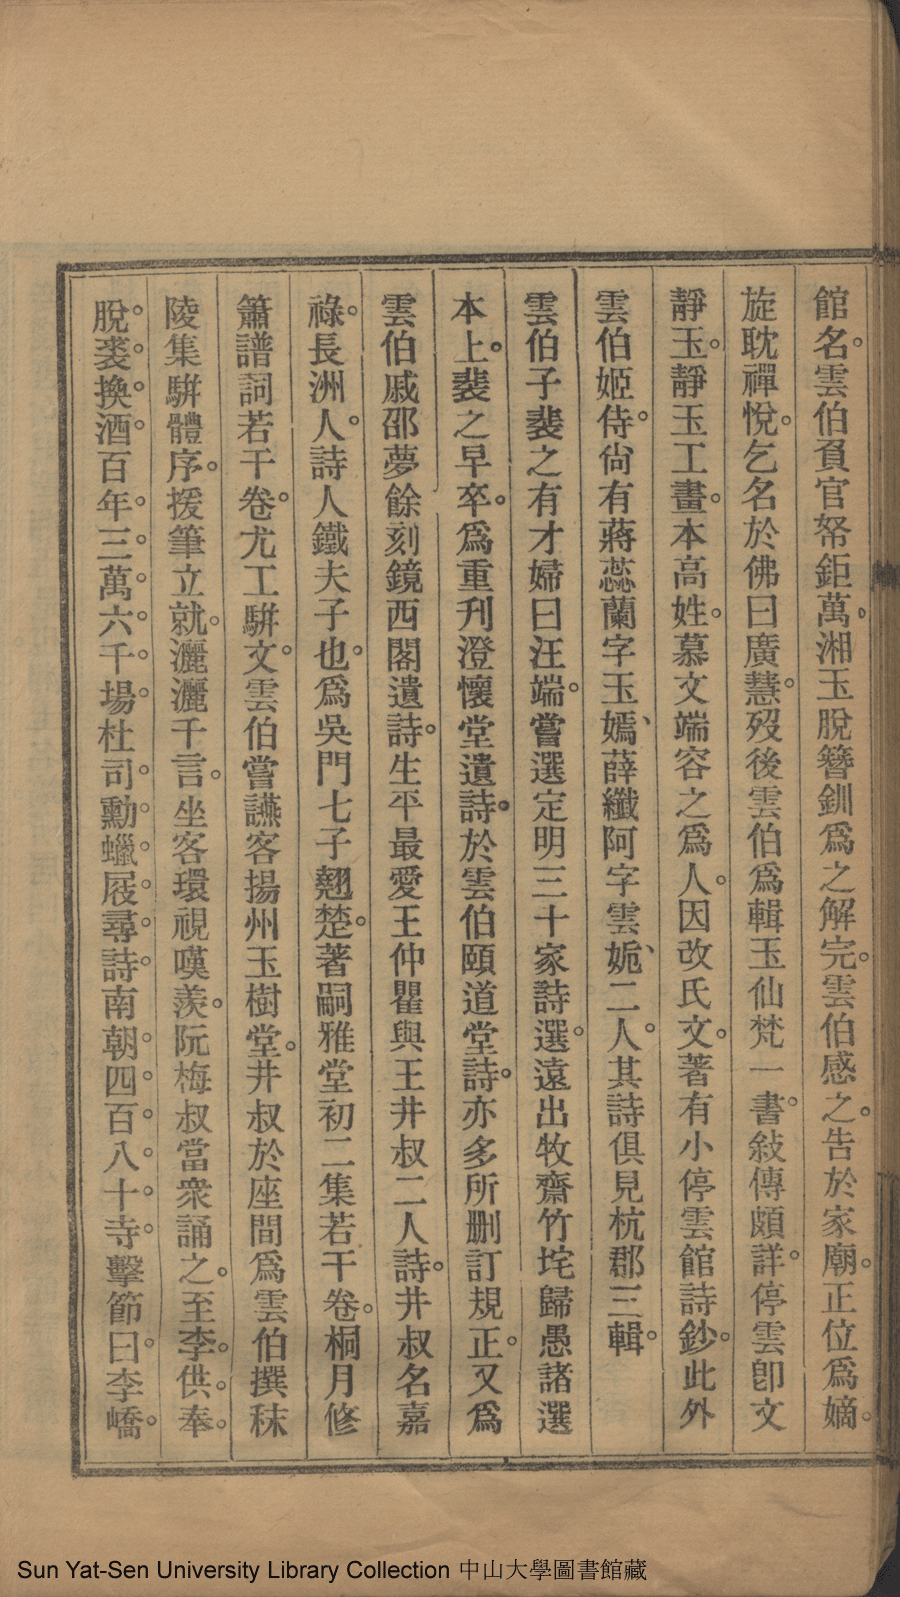 館名。雲伯負官帑鉅萬、湘玉脫簪釧爲之解完。雲伯感之。告於家廟。正位爲嫡。
旋耽禪悅。乞名於佛曰廣慧。歿後雲伯爲輯玉仙梵一書。敍傳頗詳。停雲卽文
靜玉。靜玉工畫。本高姓。慕文端容之爲人。因改氏文。著有小停雲館詩鈔。此外
雲伯姬侍。尙有蔣蕊蘭字玉嫣、薛纖阿字雲妮、二人。其詩俱見杭郡三輯。
雲伯子裴之有才婦曰汪端。嘗選定明三十家詩選。遠出牧齋竹垞歸愚諸選
本上。裴之早卒。爲重刋澄懷堂遺詩。於雲伯頤道堂詩。亦多所删訂規正。又爲
雲伯戚邵夢餘刻鏡西閣遺詩。生平最愛王仲瞿與王井叔二人詩。井叔名嘉
祿。長洲人。詩人鐵夫子也。爲吳門七子翹楚。著嗣雅堂初二集若干卷。桐月修
簫譜詞若干卷。尤工騈文。雲伯嘗讌客揚州玉樹堂。井叔於座間爲雲伯撰秣
陵集騈體序。援筆立就。灑灑千言。坐客環視嘆羨。阮梅叔當衆誦之。至李。供。奉。
脫。裘。換。酒。百年。三。萬。六。千。場。杜司。勳。蠟。屐。尋。詩。南朝。四。百。八。十。寺。擊節曰。李嶠。
Sun Yat-Sen University Library Collection 中山大學圖書館藏